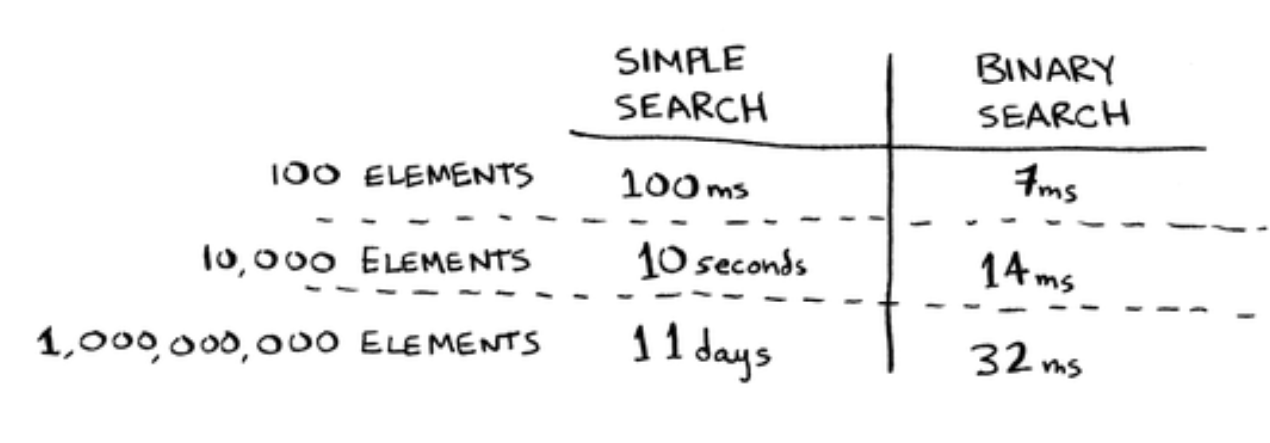 SIMPLE SEARCH
BINARY SEARCH
100 ELEMENTS 100ms 7ms
10,000 ELEMENTS 10 seconds 14ms
1,000,000,000 ELEMENTS 11 days 32 ms